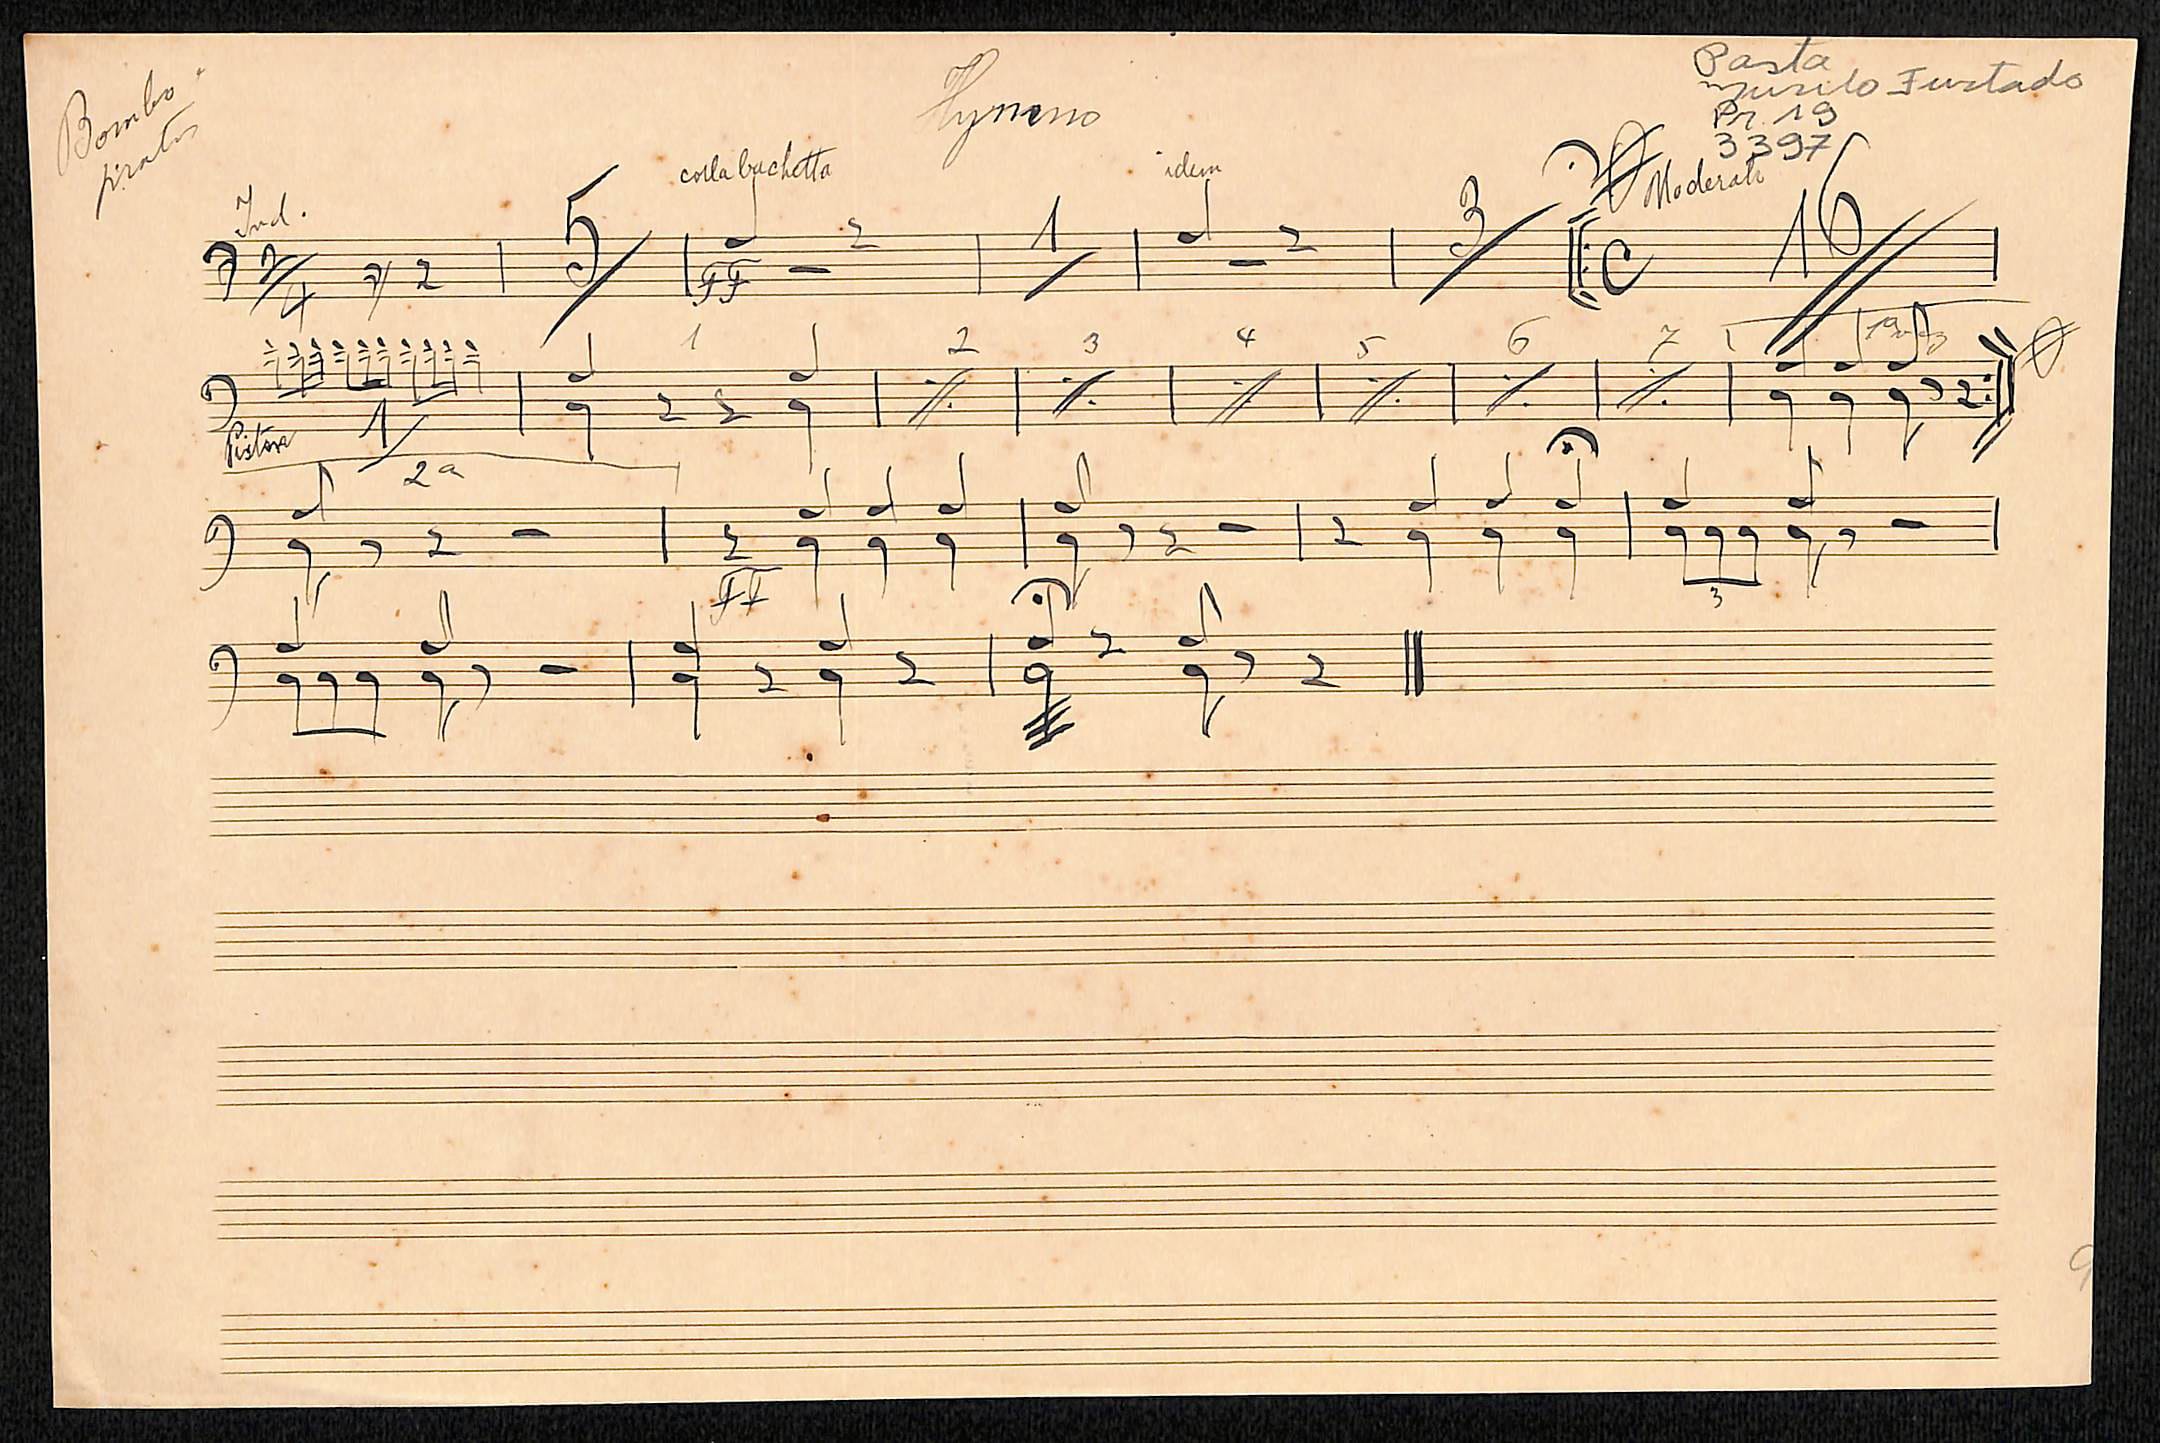 Bombo
pratos
Hymno
Pasta
Murilo Furtado
Pr. 19
3397
Ind.
colla bachetta
idem
Moderato
2/4
5
FF
1
3
C
16
Pistons
1
1
2
3
4
5
6
7
1a
2a
FF
3